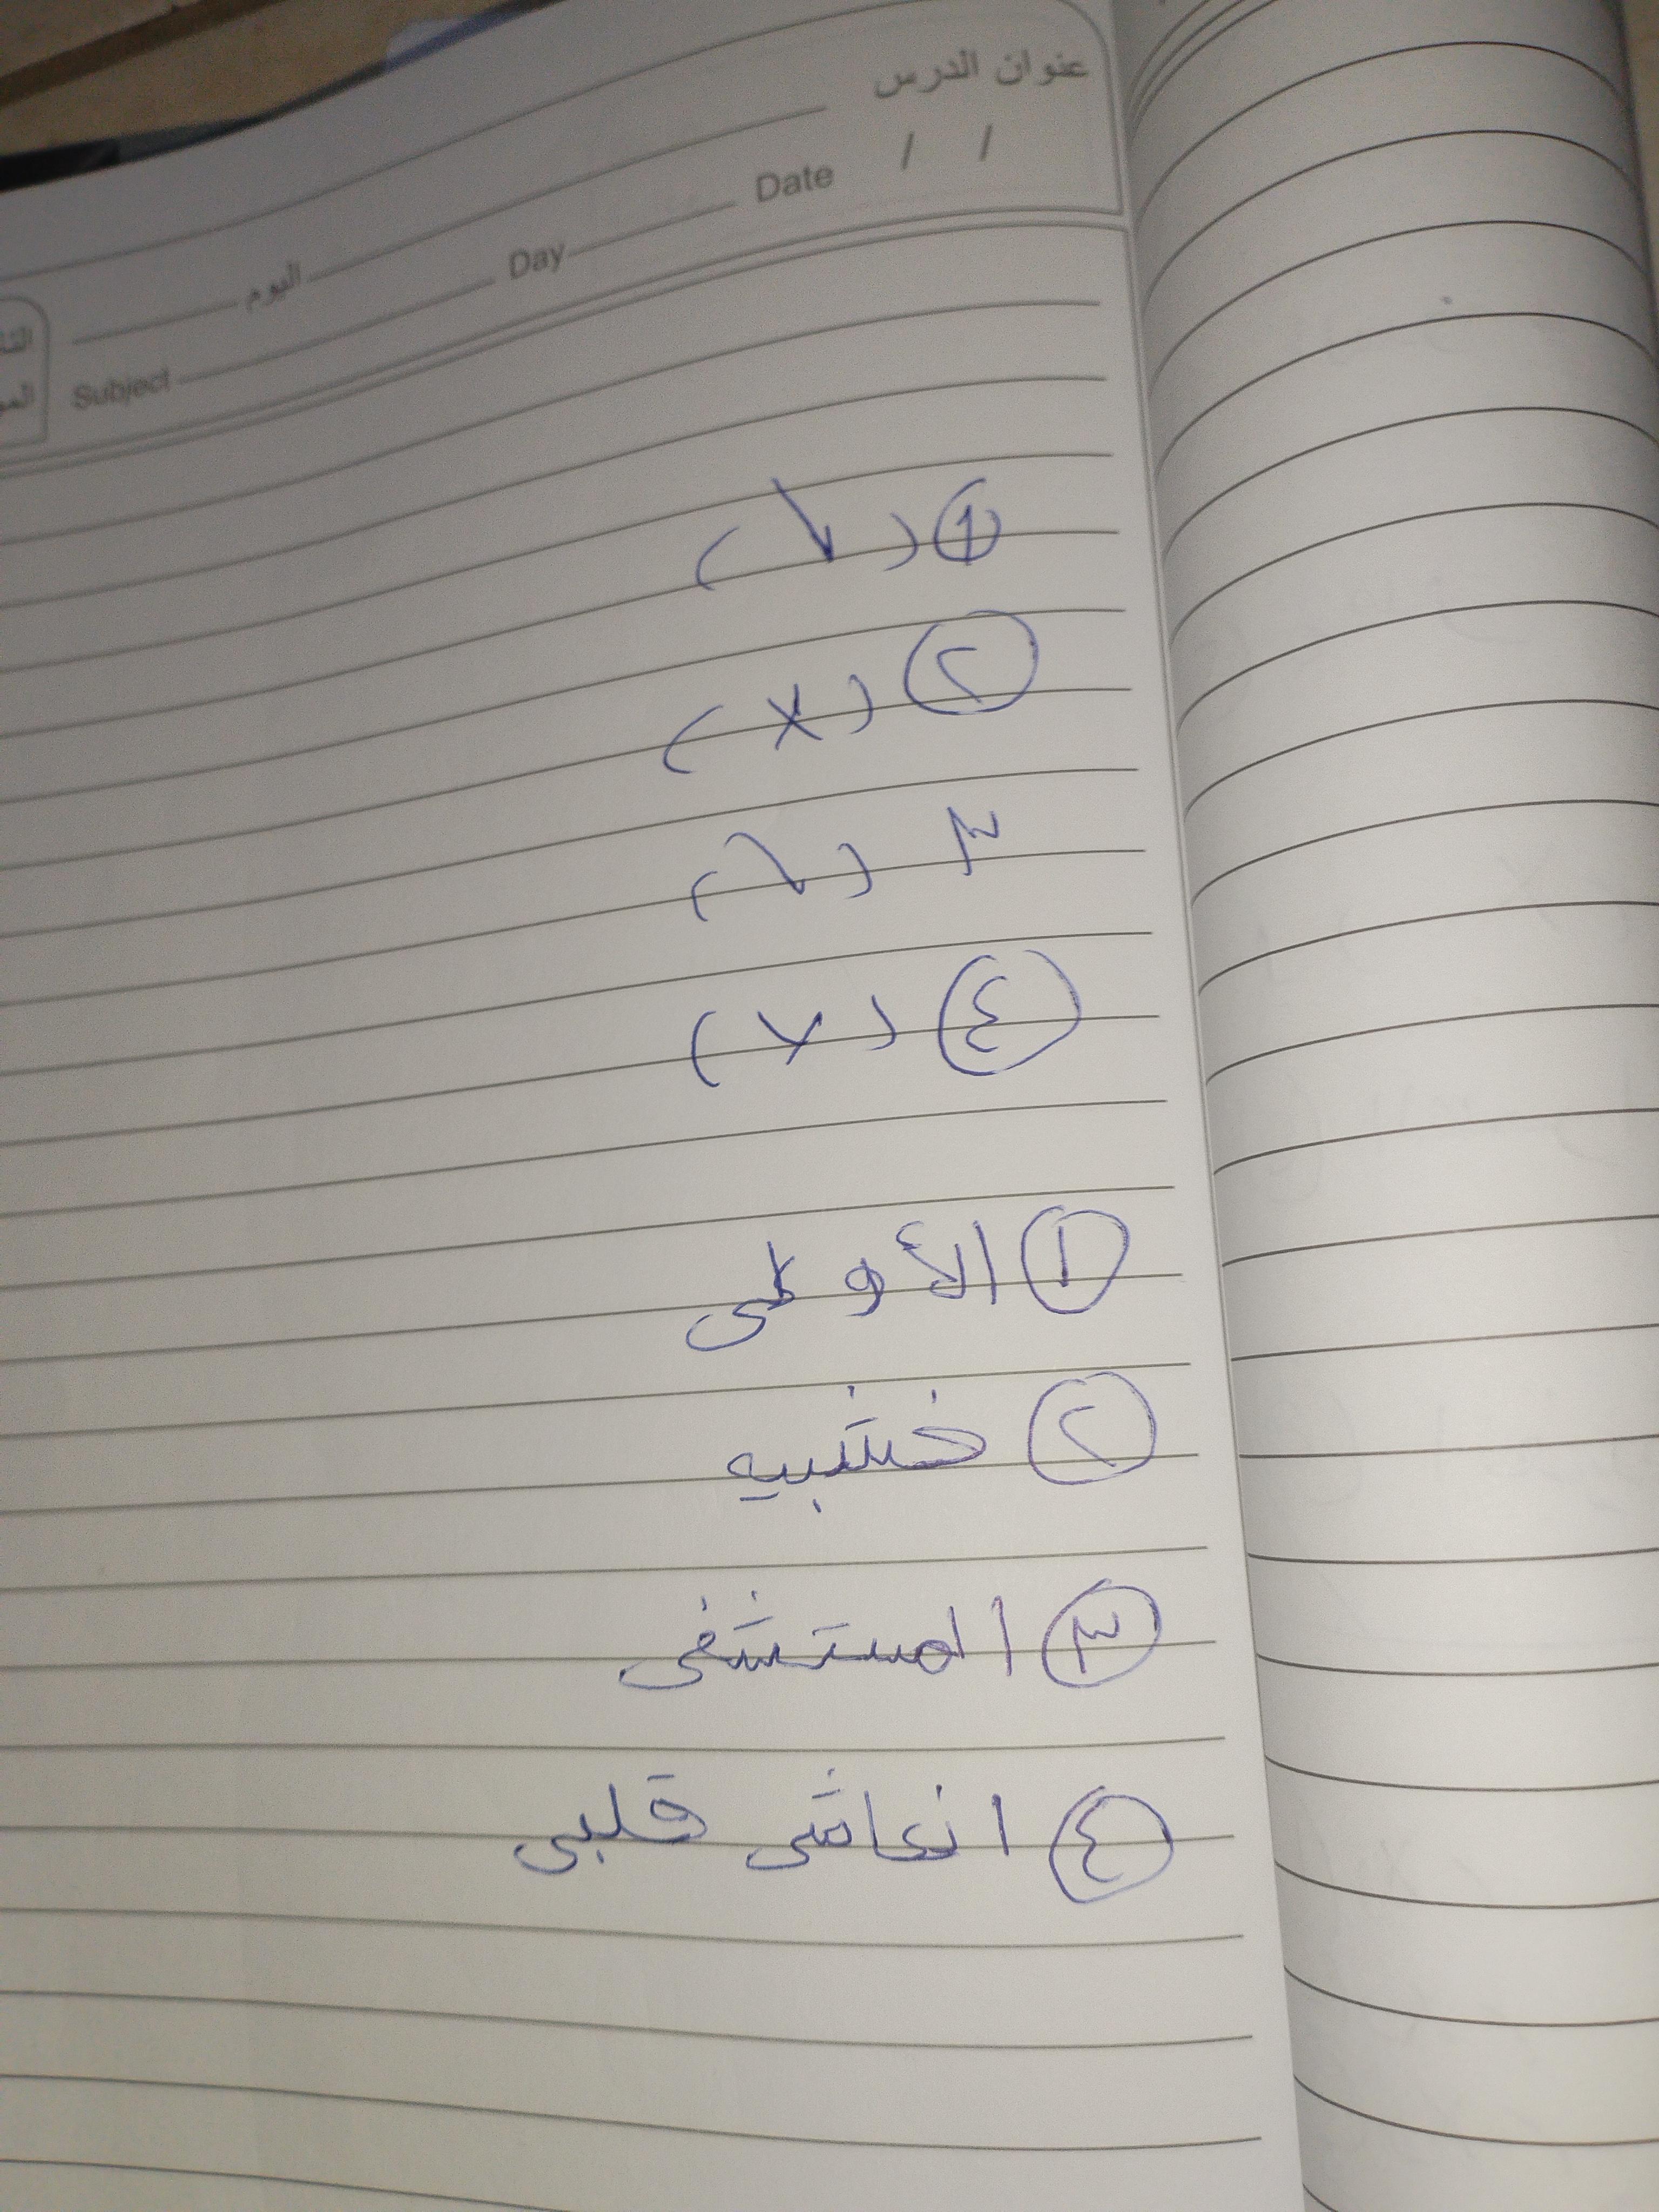 عنوان الدرس
Date / /
اليوم
Day
Subject
١ (✓)
٢ (×)
٣ (✓)
٤ (✓)
١ الأولى
٢ خشبيه
٣ المستشفى
٤ انعاش قلبي